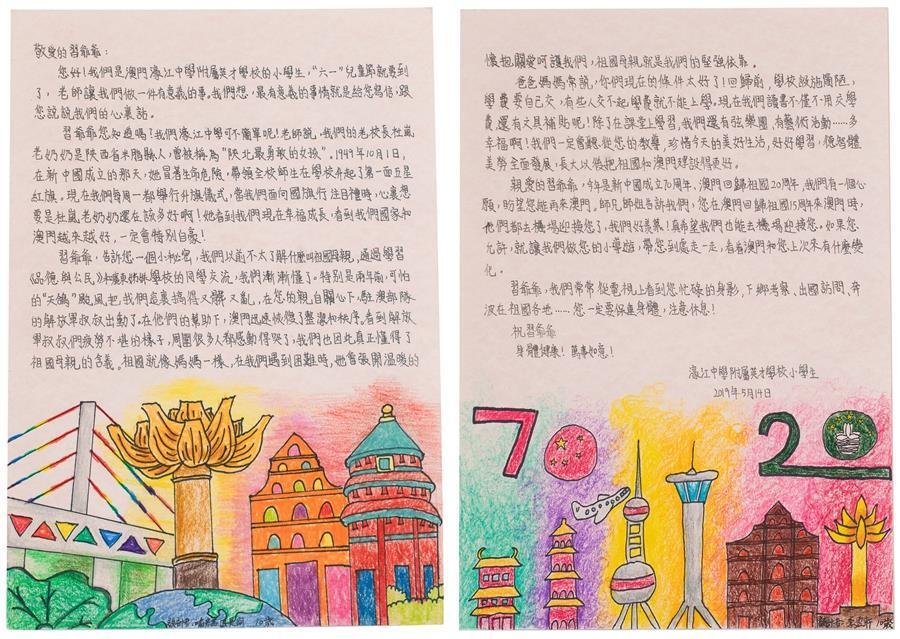 敬愛的習爺爺：
您好！我們是澳門濠江中學附屬英才學校的小學生，“六一”兒童節就要到
了，老師讓我們做一件有意義的事。我們想，最有意義的事情就是給您寫信，跟
您說說我們的心裏話。
習爺爺您知道嗎！我們濠江中學可不簡單呢！老師說，我們的老校長杜嵐
老奶奶是陝西省米脂縣人，曾被稱為“陝北最勇敢的女孩”。1949年10月1日，
在新中國成立的那天，她冒著生命危險，帶領全校師生在學校升起了第一面五星
紅旗。現在我們每周一都舉行升旗儀式，當我們面向國旗行注目禮時，心裏想
要是杜嵐老奶奶還在該多好啊！她看到我們現在幸福成長，看到我們國家和
澳門越來越好，一定會特別自豪！
習爺爺，告訴您一個小秘密，我們以前不太了解什麼叫祖國母親，通過學習
《品德與公民》和 學校的同學交流，我們漸漸懂了。特別是兩年前，可怕
的“天鴿”颱風把我們這裏搞得又髒又亂，在您的親自關心下，駐澳部隊
的解放軍叔叔出動了。在他們的幫助下，澳門迅速恢復了整潔和秩序。看到解放
軍叔叔們疲勞不堪的樣子，周圍很多人都感動得哭了，我們也因此真正懂得了
祖國母親的含義。祖國就像媽媽一樣，在我們遇到困難時，她會張開溫暖的
懷抱關愛呵護我們，祖國母親就是我們的堅強依靠。
爸爸媽媽常說，你們現在的條件太好了！回歸前，學校設施簡陋，
學費要自己交，有些人交不起學費就不能上學。現在我們讀書不僅不用交學
費，還有文具補貼呢！除了在課堂上學習，我們還有弦樂團，有藝術活動……多
幸福啊！我們一定會聽從您的教導，珍惜今天的美好生活，好好學習，德智體
美勞全面發展，長大以後把祖國和澳門建設得更好。
親愛的習爺爺，今年是新中國成立70周年、澳門回歸祖國20周年，我們有一個心
願，盼望您能再來澳門。師兄師姐告訴我們，您在澳門回歸祖國15周年來澳門時，
他們都去機場迎接您了，我們好羨慕！真希望我們也能去機場迎接您。如果您
允許，就讓我們做您的小導遊，帶您到處走一走，看看澳門和您上次來有什麼變
化。
習爺爺，我們常常從電視上看到您忙碌的身影，下鄉考察、出國訪問、奔
波在祖國各地……您一定要保重身體，注意休息！
祝習爺爺
身體健康！萬事如意！
濠江中學附屬英才學校小學生
2019年5月14日
70
20
10歲